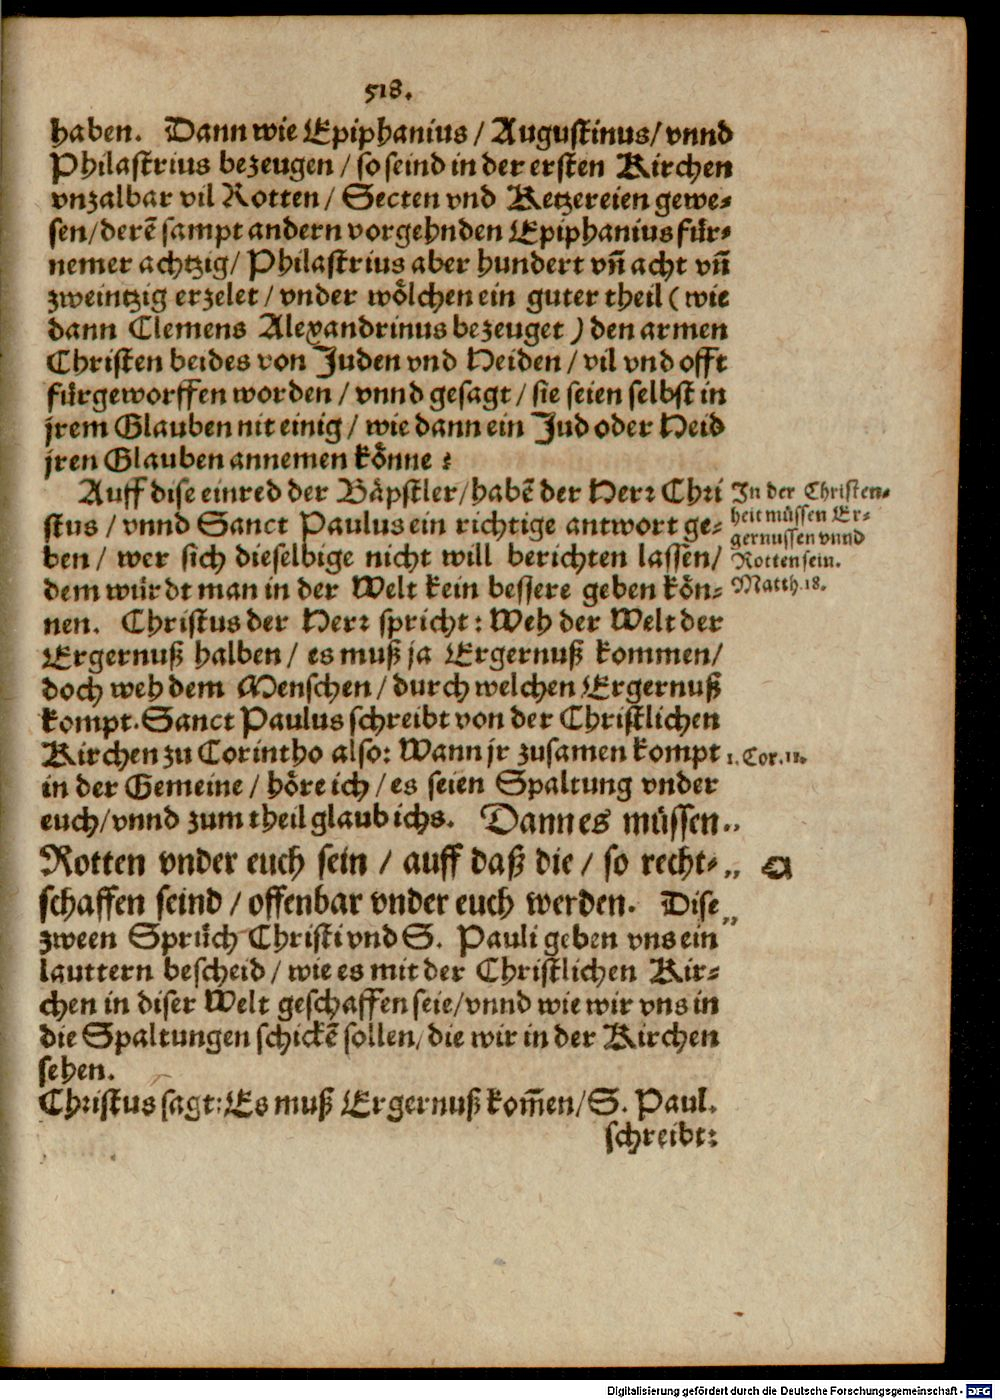 518.
haben. Dann wie Epiphanius / Augustinus / vnnd
Philastrius bezeugen / so seind in der ersten Kirchen
vnzalbar vil Rotten / Secten vnd Ketzereien gewe-
sen / derē sampt andern vorgehnden Epiphanius für-
nemer achtzig / Philastrius aber hundert vñ acht vñ
zweintzig erzelet / vnder wölchen ein guter theil ( wie
dann Clemens Alexandrinus bezeuget ) den armen
Christen beides von Juden vnd Heiden / vil vnd offt
fürgeworffen worden / vnnd gesagt / sie seien selbst in
jrem Glauben nit einig / wie dann ein Jud oder Heid
jren Glauben annemen könne ?
Auff dise einred der Bäpstler / habē der Herr Chri
stus / vnnd Sanct Paulus ein richtige antwort ge-
ben / wer sich dieselbige nicht will berichten lassen /
dem würdt man in der Welt kein bessere geben kön-
nen. Christus der Herr spricht : Weh der Welt der
Ergernuß halben / es muß ja Ergernuß kommen /
doch weh dem Menschen / durch welchen Ergernuß
kompt. Sanct Paulus schreibt von der Christlichen
Kirchen zu Corintho also: Wann jr zusamen kompt
in der Gemeine / höre ich / es seien Spaltung vnder
euch / vnnd zum theil glaub ichs. Dann es müssen
Rotten vnder euch sein / auff daß die / so recht-
schaffen seind / offenbar vnder euch werden. Dise
zween Sprüch Christi vnd S. Pauli geben vns ein
lauttern bescheid / wie es mit der Christlichen Kir-
chen in diser Welt geschaffen seie / vnnd wie wir vns in
die Spaltungen schickē sollen / die wir in der Kirchen
sehen.
Christus sagt: Es muß Ergernuß kom̄en / S. Paul.
schreibt:
In der Christen-
heit müssen Er-
gernussen vnnd
Rotten sein.
Matth. 18.
1. Cor. 11.
Digitalisierung gefördert durch die Deutsche Forschungsgemeinschaft - DFG